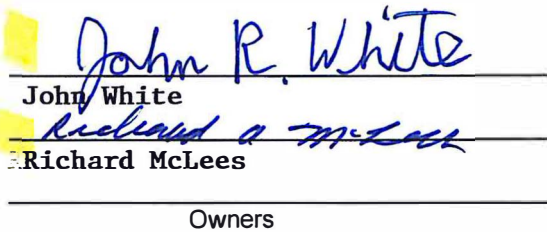 John R. White
John White
Richard a McLees
Richard McLees
Owners